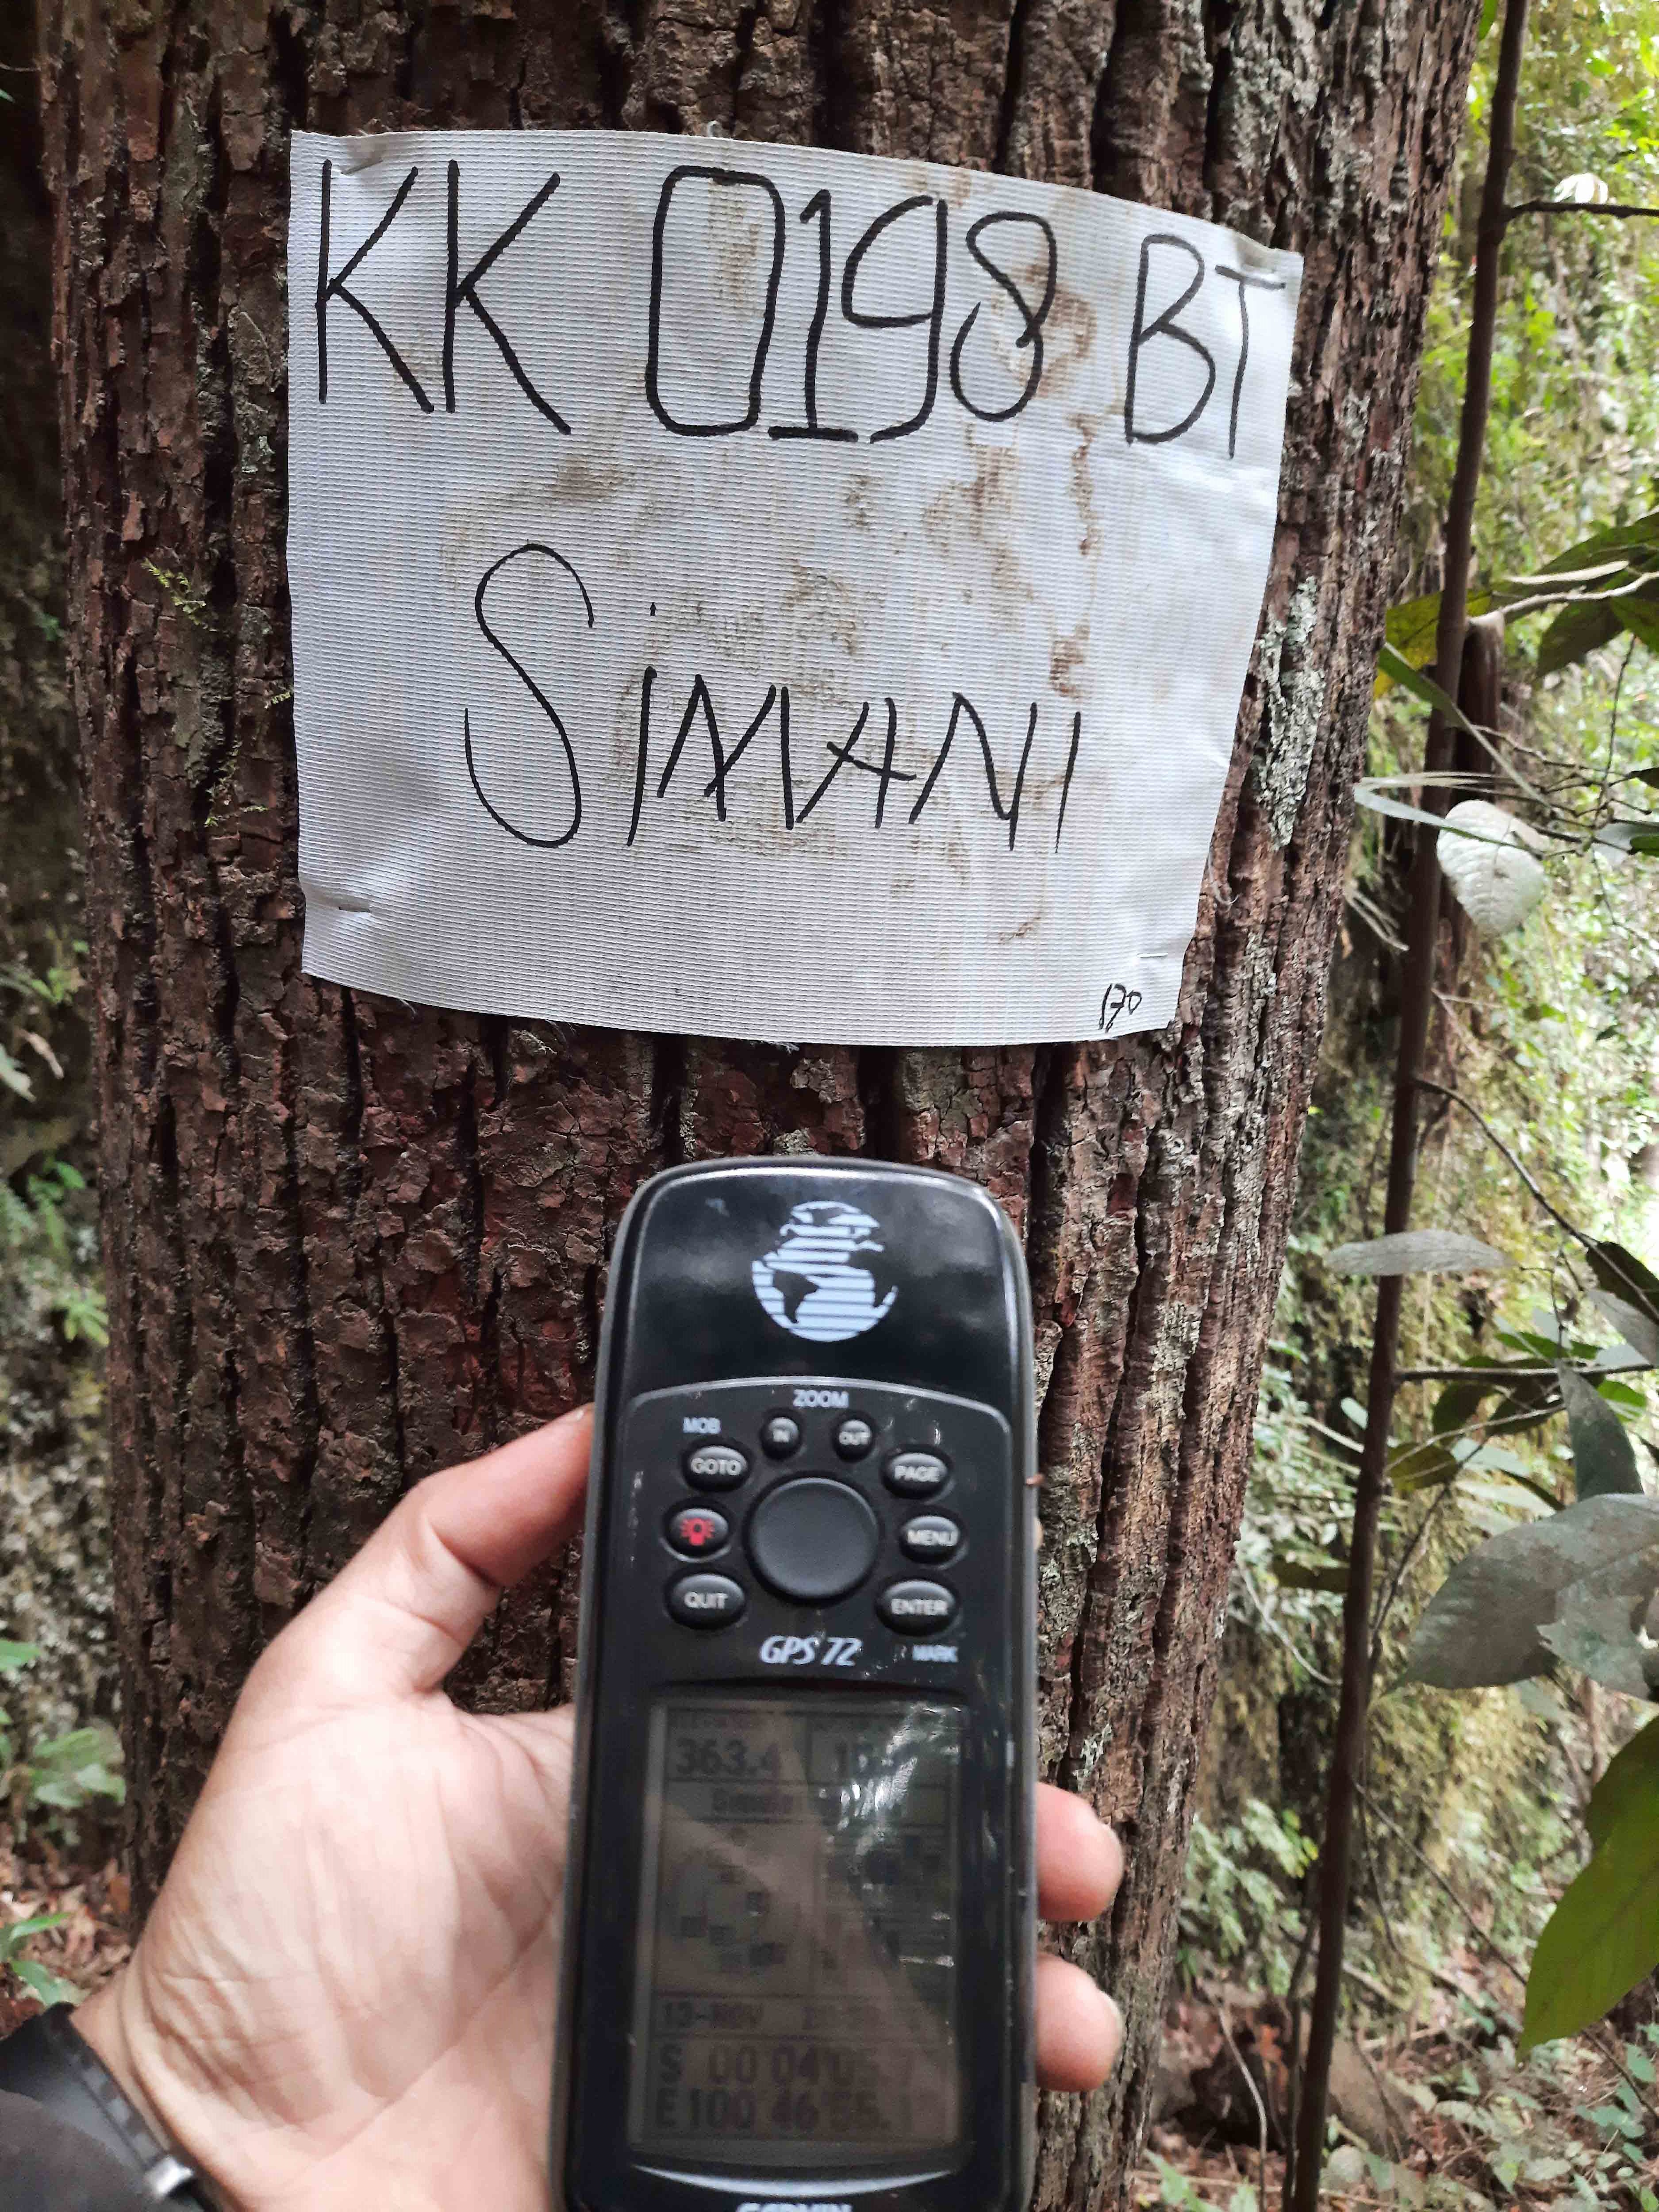 KK 0198 BT
SiMANI
130
ZOOM
MOB
IN
OUT
GOTO
PAGE
MENU
QUIT
ENTER
GPS 72
MARK
363.4
13-NOV
S 00 04'05
E100 46
GARMIN